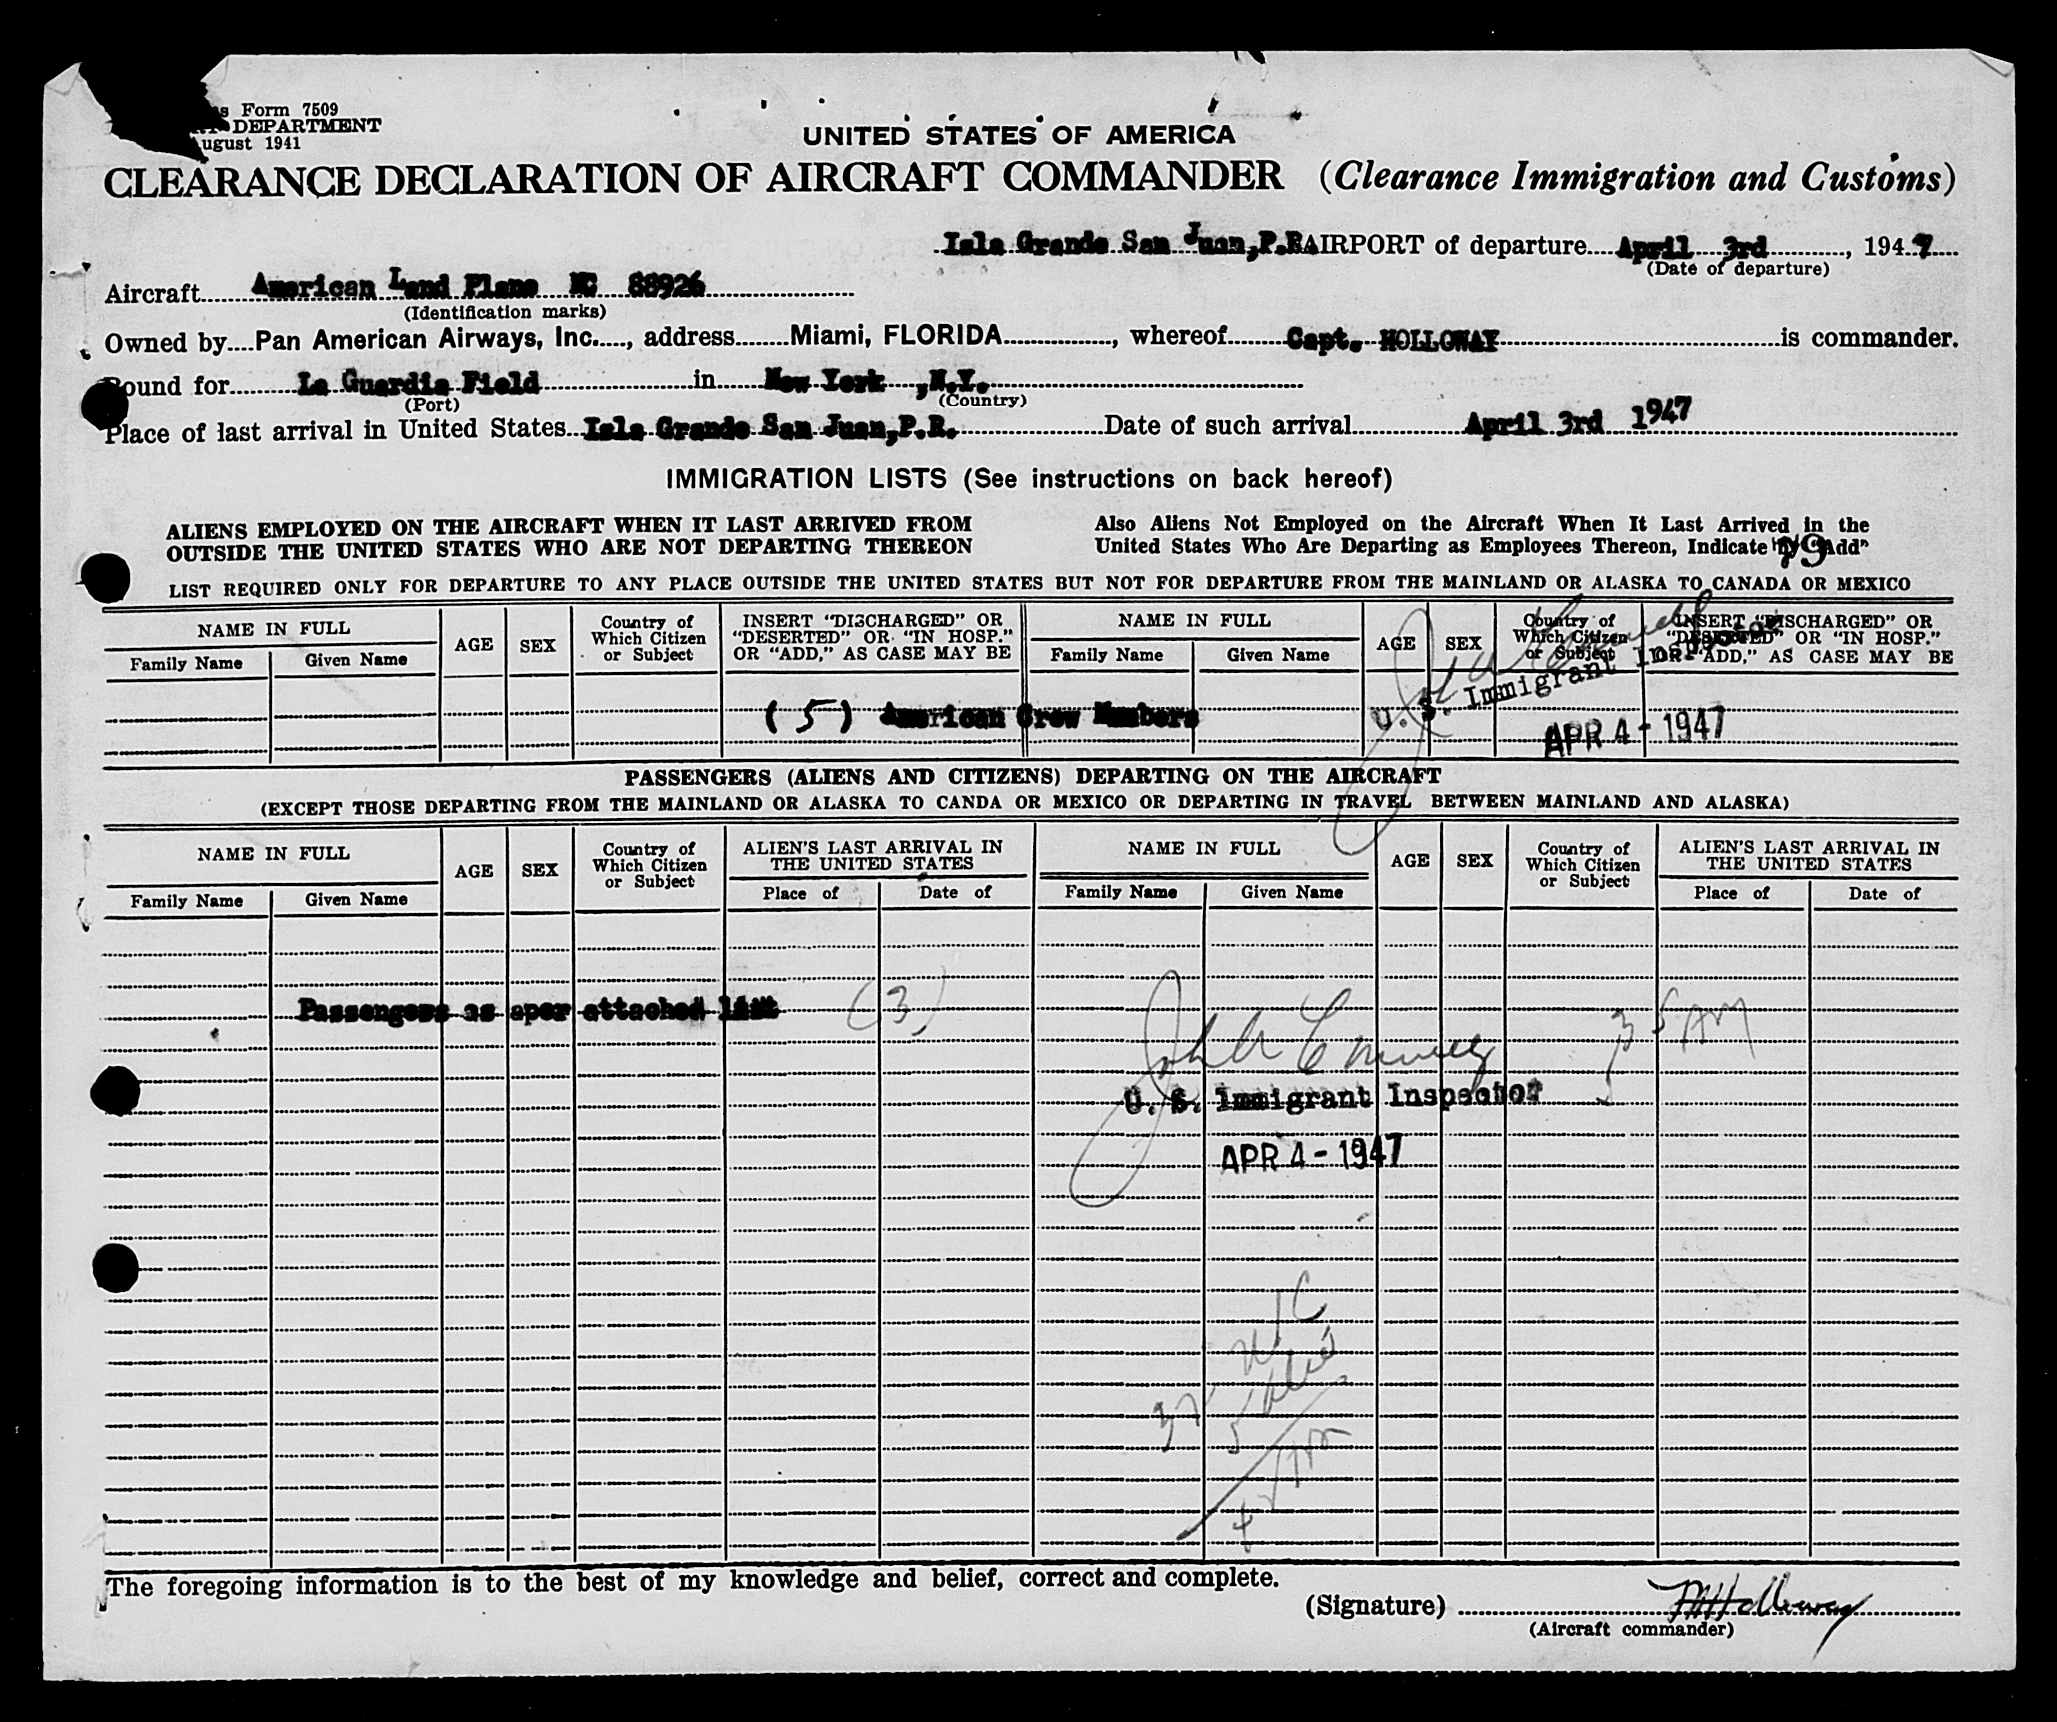 s Form 7509
DEPARTMENT
ugust 1941
UNITED STATES OF AMERICA
CLEARANCE DECLARATION OF AIRCRAFT COMMANDER (Clearance Immigration and Customs)
Isla Grande San Juan,P.R. AIRPORT of departure April 3rd, 1947
(Date of departure)
Aircraft American Land Plane NC 88926
(Identification marks)
Owned by Pan American Airways, Inc., address Miami, FLORIDA, whereof Capt. HOLLOWAY is commander.
Bound for La Guardia Field in New York ,N.Y.
(Port) (Country)
Place of last arrival in United States Isla Grande San Juan,P.R. Date of such arrival April 3rd 1947
IMMIGRATION LISTS (See instructions on back hereof)
ALIENS EMPLOYED ON THE AIRCRAFT WHEN IT LAST ARRIVED FROM
OUTSIDE THE UNITED STATES WHO ARE NOT DEPARTING THEREON
Also Aliens Not Employed on the Aircraft When It Last Arrived in the
United States Who Are Departing as Employees Thereon, Indicate by "Add"
79
LIST REQUIRED ONLY FOR DEPARTURE TO ANY PLACE OUTSIDE THE UNITED STATES BUT NOT FOR DEPARTURE FROM THE MAINLAND OR ALASKA TO CANADA OR MEXICO
NAME IN FULL
Family Name Given Name
AGE SEX
Country of
Which Citizen
or Subject
INSERT "DISCHARGED" OR
"DESERTED" OR "IN HOSP."
OR "ADD," AS CASE MAY BE
NAME IN FULL
Family Name Given Name
AGE SEX
Country of
Which Citizen
or Subject
INSERT "DISCHARGED" OR
"DESERTED" OR "IN HOSP."
OR "ADD," AS CASE MAY BE
(5) American Crew Members
U. S. Immigrant Inspector
APR 4 - 1947
PASSENGERS (ALIENS AND CITIZENS) DEPARTING ON THE AIRCRAFT
(EXCEPT THOSE DEPARTING FROM THE MAINLAND OR ALASKA TO CANDA OR MEXICO OR DEPARTING IN TRAVEL BETWEEN MAINLAND AND ALASKA)
NAME IN FULL
Family Name Given Name
AGE SEX
Country of
Which Citizen
or Subject
ALIEN'S LAST ARRIVAL IN
THE UNITED STATES
Place of Date of
NAME IN FULL
Family Name Given Name
AGE SEX
Country of
Which Citizen
or Subject
ALIEN'S LAST ARRIVAL IN
THE UNITED STATES
Place of Date of
Passengers as aper attached list (3)
35 AM
U. S. Immigrant Inspector
APR 4 - 1947
The foregoing information is to the best of my knowledge and belief, correct and complete.
(Signature) Holloway
(Aircraft commander)